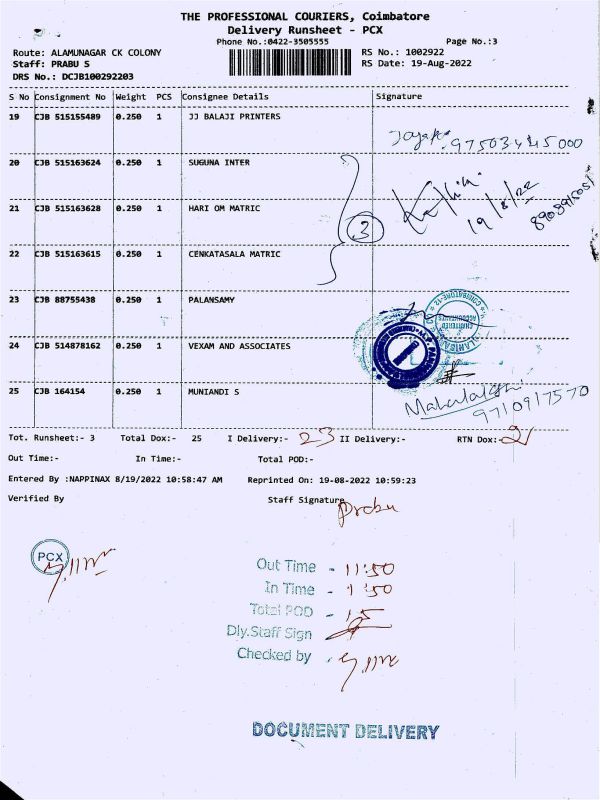 THE PROFESSIONAL COURIERS, Coimbatore
Delivery Runsheet - PCX
Phone No.:0422-3505555 Page No.:3
Route: ALAMUNAGAR CK COLONY RS No.: 1002922
Staff: PRABU S RS Date: 19-Aug-2022
DRS No.: DCJB100292203
S No Consignment No Weight PCS Consignee Details Signature
19 CJB 515155489 0.250 1 JJ BALAJI PRINTERS
20 CJB 515163624 0.250 1 SUGUNA INTER
21 CJB 515163628 0.250 1 HARI OM MATRIC
3 19/8/22
22 CJB 515163615 0.250 1 CENKATASALA MATRIC
23 CJB 88755438 0.250 1 PALANSAMY
24 CJB 514878162 0.250 1 VEXAM AND ASSOCIATES
25 CJB 164154 0.250 1 MUNIANDI S
Mahalakshmi
9710917570
Tot. Runsheet:- 3 Total Dox:- 25 I Delivery:- 23 II Delivery:- RTN Dox:- 2
Out Time:- In Time:- Total POD:-
Entered By :NAPPINAX 8/19/2022 10:58:47 AM Reprinted On: 19-08-2022 10:59:23
Verified By Staff Signature
Prabu
PCX
Out Time - 11:50
In Time - 1:50
Total POD - 15
Dly.Staff Sign
Checked by
DOCUMENT DELIVERY